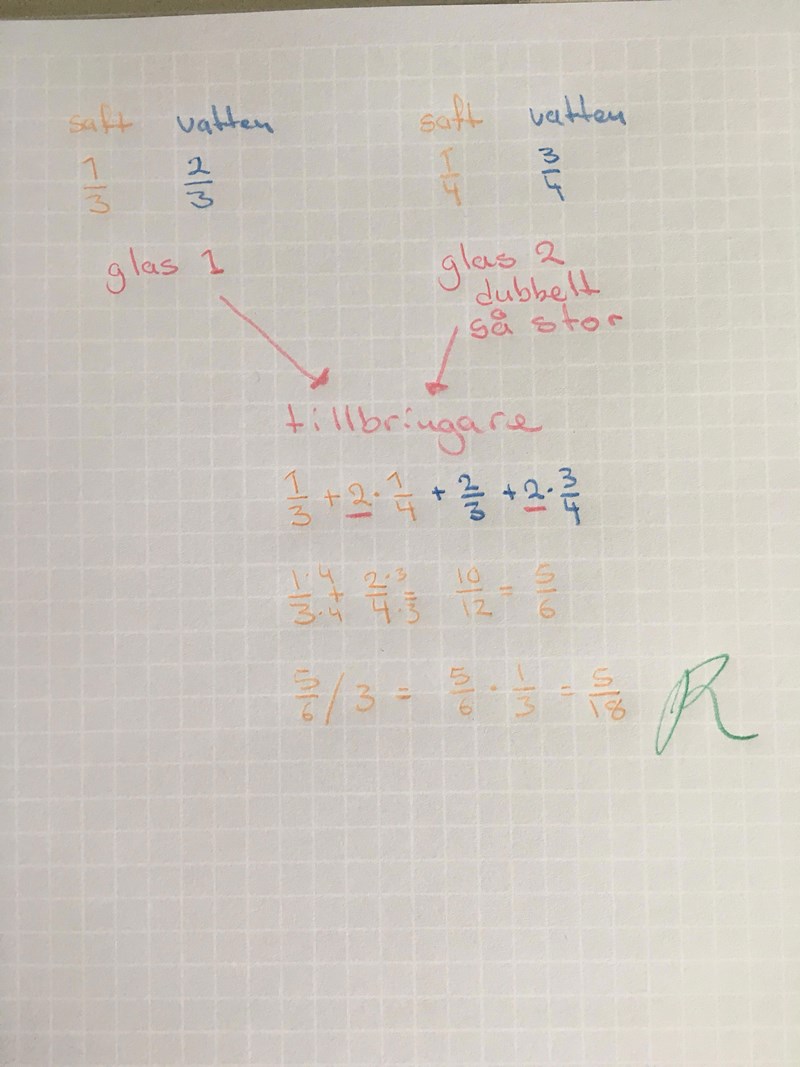 saft vatten saft vatten
1/3 2/3 1/4 3/4
glas 1 glas 2
dubbelt
så stor
tillbringare
1/3 + 2 · 1/4 + 2/3 + 2 · 3/4
1·4/3·4 + 2·3/4·3 = 10/12 = 5/6
5/6 / 3 = 5/6 · 1/3 = 5/18 R